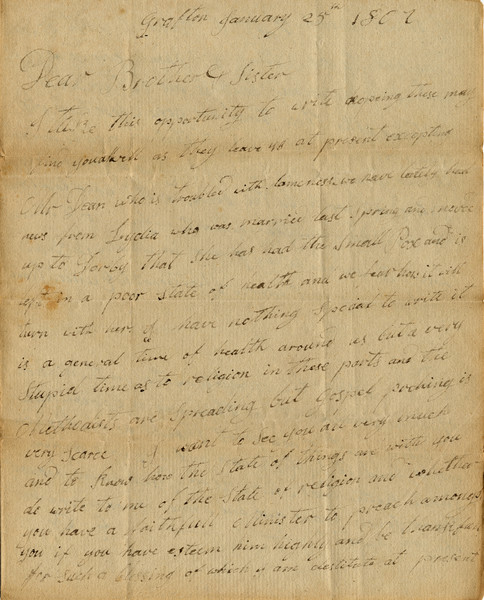 Grafton January 25th 1807
Dear Brother & Sister
I take this opportunity to write hopeing these may
find you all well as they leave us at present excepting
Mr Dean who is troubled with lameness, we have lately had
news from Lydia who was married last spring and moved
up to that she has had the Small Pox and is
left in a poor state of health and we fear how it will
turn with her, I have nothing Special to write it
is a general time of health around us but a very
Stupid time as to religion in these parts and the
Methodists are spreading but Gospel preching is
very scarce I want to see you all very much
and to know how the state of things are with you
do write to me of the state of religion and whether
you have a faithfull Minister to preach amongs
you if you have esteem him highly and be thankfull
for such a blessing of which I am destitute at present